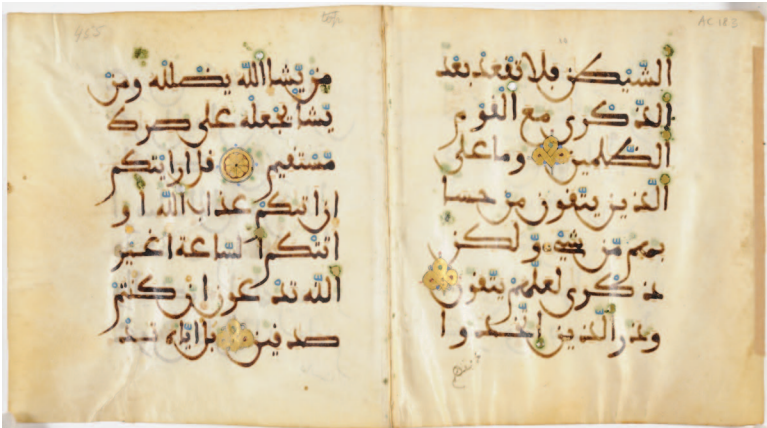 AC.183
الشيطن فلا تقعد بعد
الذكرى مع القوم
الظلمين وما على
الذين يتقون من حسا
بهم من شيء ولكن
ذكرى لعلهم يتقون
وذر الذين اتخذوا
دينهم
من يشا الله يضلله ومن
يشا يجعله على صرط
مستقيم قل ارايتكم
ان اتيكم عذاب الله او
اتتكم الساعة اغير
الله تدعون ان كنتم
صدقين بل اياه تد